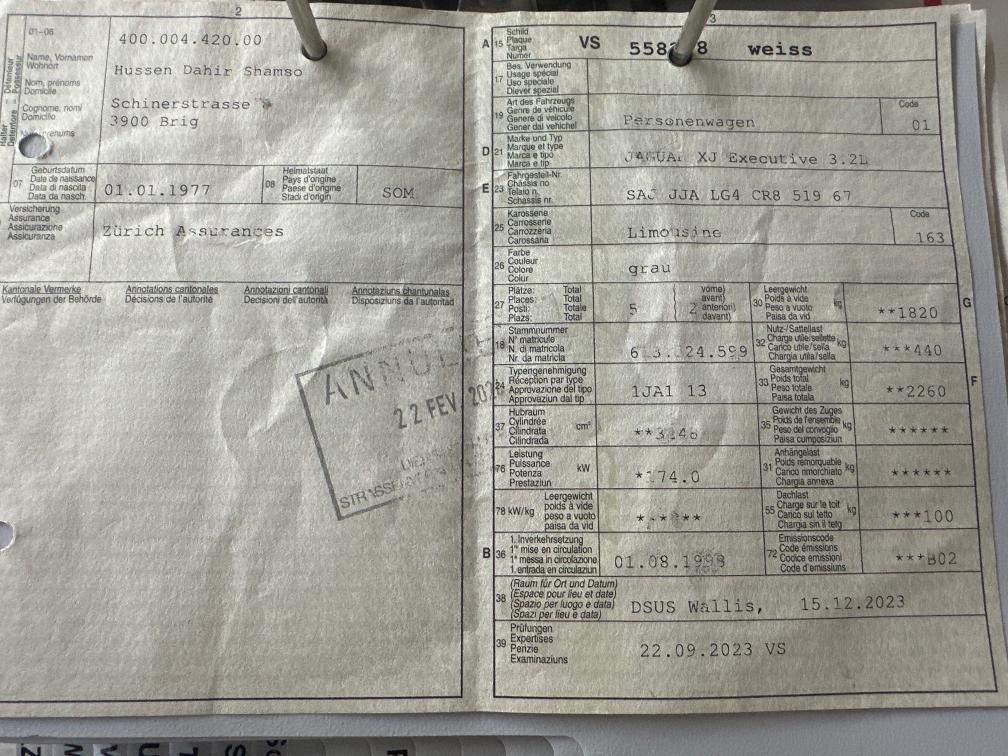 2
01-06
Name, Vornamen
Wohnort
Nom, prénoms
Domicile
Cognome, nomi
Domicilio
400.004.420.00
Hussen Dahir Shamso
Schinerstrasse
3900 Brig
07
Geburtsdatum
Data de naissance
Data di nascita
Data da nasch.
01.01.1977
08
Heimatstaat
Pays d'origine
Paese d'origine
Stadi d'origin
SOM
Versicherung
Assurance
Assicurazione
Assicuranza
Zürich Assurances
Kantonale Vermerke
Verfügungen der Behörde
Annotations cantonales
Décisions de l'autorité
Annotazioni cantonali
Decisioni dell'autorità
Annotaziuns chantunalas
Disposiziuns da l'autoritad
22 FEV.
3
A 15
Schild
Plaque
Targa
Numer
VS 558 8 weiss
17
Bes. Verwendung
Usage spécial
Uso speciale
Diever spezial
19
Art des Fahrzeugs
Genre de véhicule
Genere di veicolo
Gener dal vehichel
Personenwagen
Code
01
D 21
Marke und Typ
Marque et type
Marca e tipo
Marca e tip
JAGUAR XJ Executive 3.2L
E 23
Fahrgestell-Nr.
Châssis no
Telaio n.
Schassis nr.
SAJ JJA LG4 CR8 519 67
25
Karosserie
Carrosserie
Carrozzeria
Carossaria
Limousine
Code
163
26
Farbe
Couleur
Colore
Colur
grau
27
Plätze: Total
Places: Total
Posti: Totale
Plazs: Total
5
vorne)
avant)
anteriori)
davant)
2
30
Leergewicht
Poids à vide
Peso a vuoto
Paisa da vid
kg
**1820
G
18
Stammnummer
N° matricule
N. di matricola
Nr. da matricla
24.599
32
Nutz-/Sattellast
Charge utile/sellette
Carico utile/sella
Chargia utila/sella
kg
***440
24
Typengenehmigung
Réception par type
Approvazione del tipo
Approvaziun dal tip
1JA1 13
33
Gesamtgewicht
Poids total
Peso totale
Paisa totala
kg
**2260
F
37
Hubraum
Cylindrée
Cilindrata
Cilindrada
cm³
35
Gewicht des Zuges
Poids de l'ensemble
Peso del convoglio
Paisa cumposiziun
kg
******
76
Leistung
Puissance
Potenza
Prestaziun
kW
*174.0
31
Anhängelast
Poids remorquable
Carico rimorchiato
Chargia annexa
kg
******
78 kW/kg
Leergewicht
poids à vide
peso a vuoto
paisa da vid
55
Dachlast
Charge sur le toit
Carico sul tetto
Chargia sin il tetg
kg
***100
B 36
1. Inverkehrsetzung
1re mise en circulation
1a messa in circolazione
1. entrada en circulaziun
01.08.1998
72
Emissionscode
Code émissions
Codice emissioni
Code d'emissiuns
***B02
38
(Raum für Ort und Datum)
(Espace pour lieu et date)
(Spazio per luogo e data)
(Spazi per lieu e data)
DSUS Wallis, 15.12.2023
39
Prüfungen
Expertises
Perizie
Examinaziuns
22.09.2023 VS